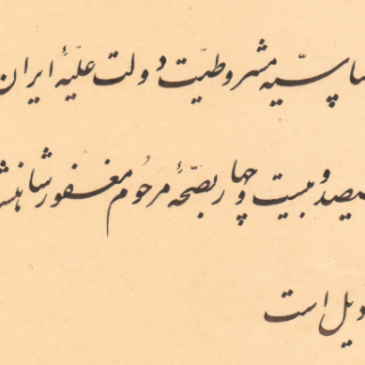 ساسیّه مشروطیّت دولت علیّهٔ ایران
یصد و بیست و چهار بصحّهٔ مرحوم مغفور شاهنش
دیل است